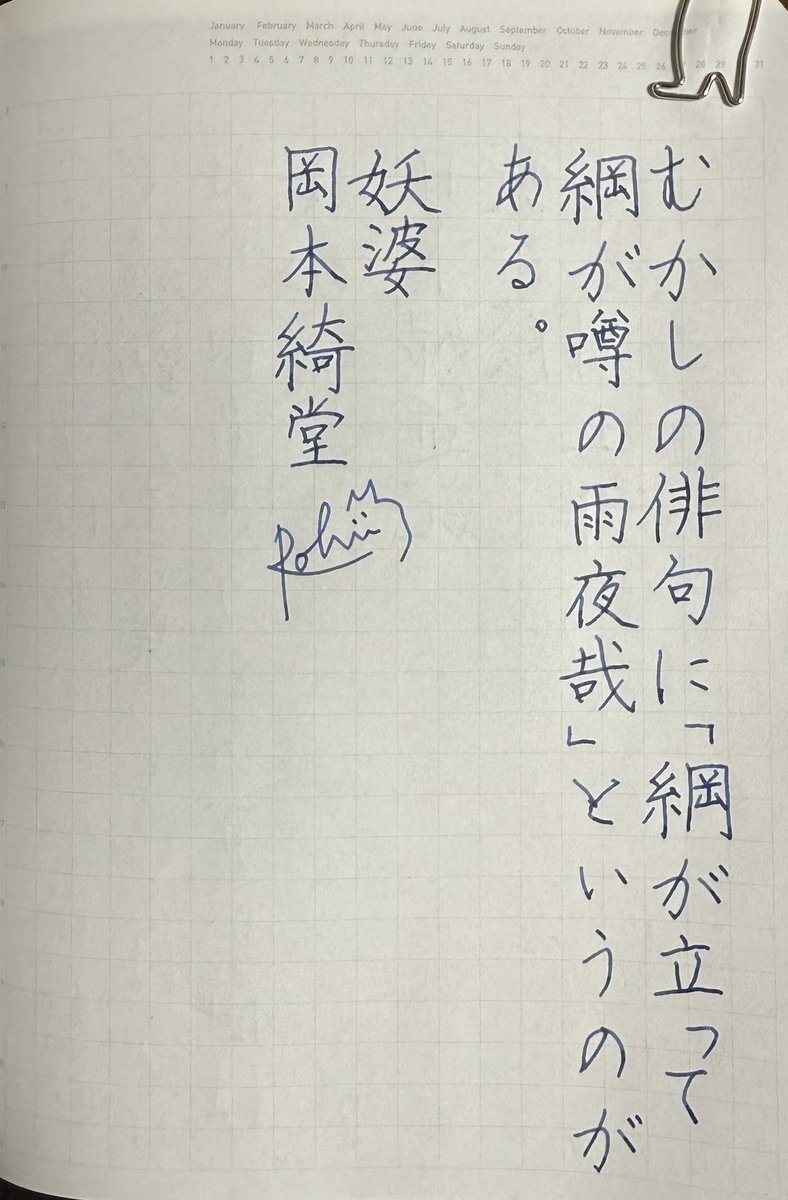 January February March April May June July August September October November December
Monday Tuesday Wednesday Thursday Friday Saturday Sunday
1 2 3 4 5 6 7 8 9 10 11 12 13 14 15 16 17 18 19 20 21 22 23 24 25 26 28 29 31
むかしの俳句に「綱が立って
綱が噂の雨夜哉」というのが
ある。
妖婆
岡本綺堂